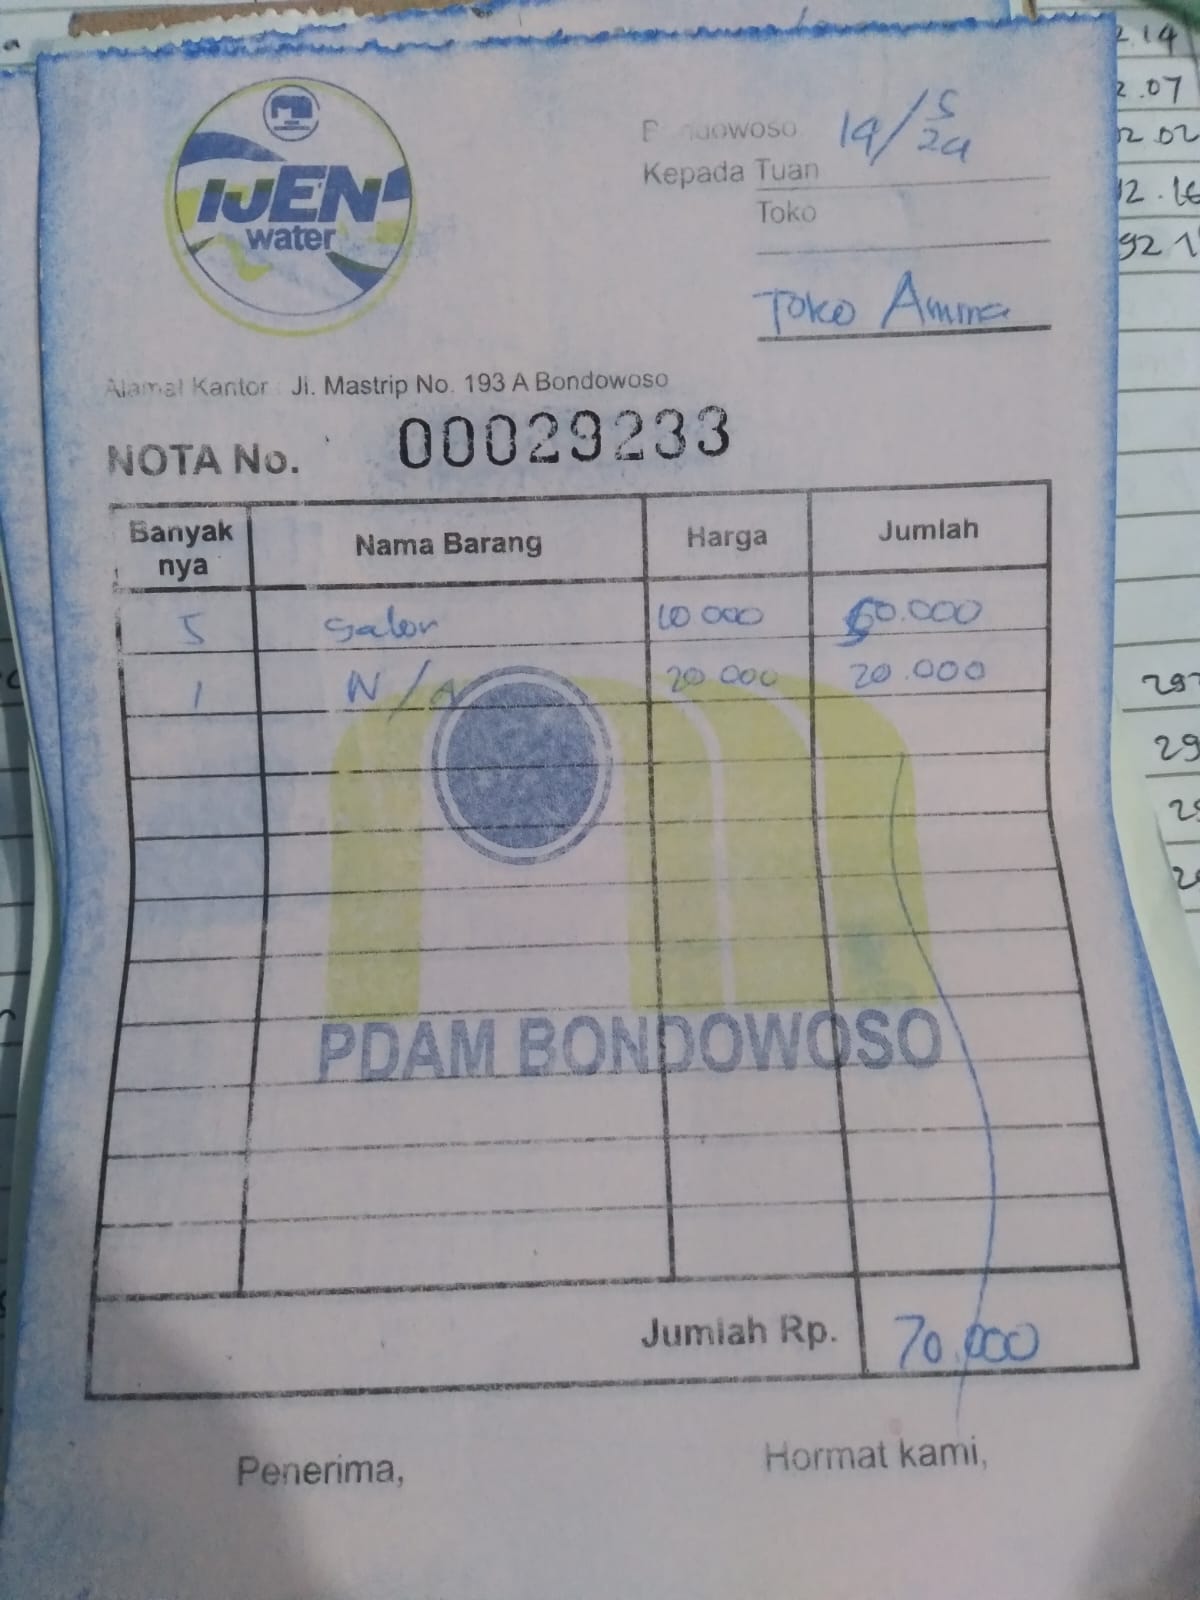 IJEN
water
Bondowoso 14/5/24
Kepada Tuan
Toko
Toko Amma
Alamat Kantor : Jl. Mastrip No. 193 A Bondowoso
NOTA No. 00029233
Banyak nya Nama Barang Harga Jumlah
5 Galon 10.000 50.000
1 N/A 20.000 20.000
PDAM BONDOWOSO
Jumlah Rp. 70.000
Penerima, Hormat kami,
2.14
2.07
02.02